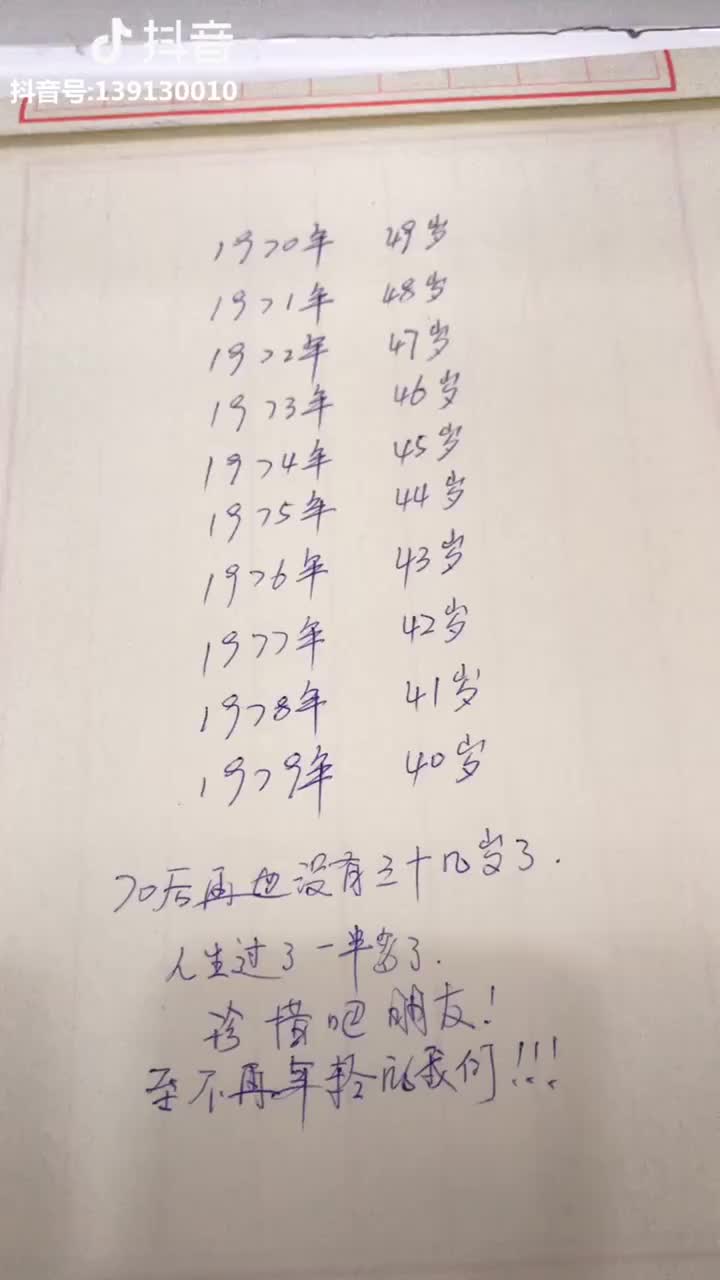 抖音
抖音号:139130010
1970年 49岁
1971年 48岁
1972年 47岁
1973年 46岁
1974年 45岁
1975年 44岁
1976年 43岁
1977年 42岁
1978年 41岁
1979年 40岁
70后再也没有三十几岁了.
人生过了一半多了.
珍惜吧朋友!
至不再年轻的我们!!!